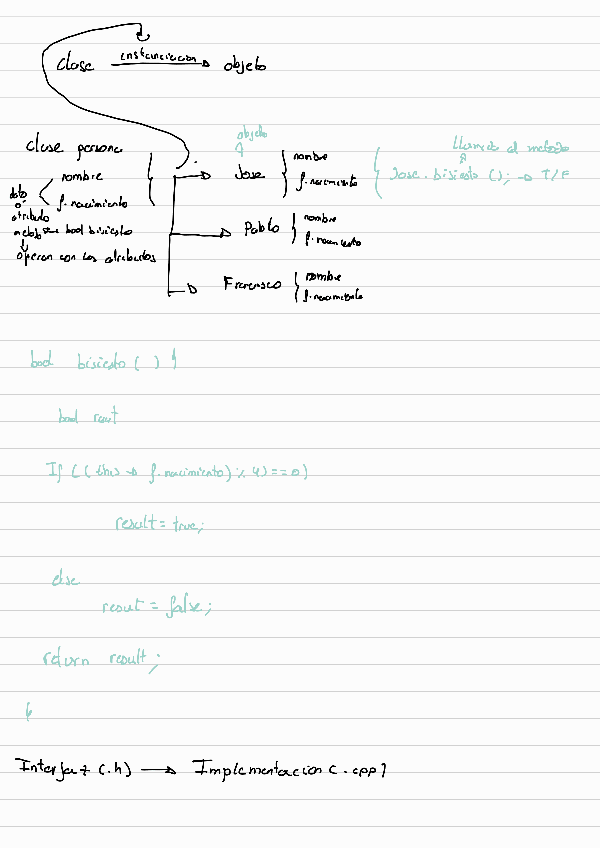 clase instanciacion objeto
clase persona
objeto
Llamada al metodo
nombre
f.nacimiento
dato
o
atributo
metodo bool bisiesto
operan con los atributos
Jose nombre
f.nacimiento
Jose.bisiesto (); → T/F
Pablo nombre
f.nacimiento
Francisco nombre
f.nacimiento
bool bisiesto ( ) {
bool
If ((this → f.nacimiento) % 4) == 0)
result = true;
else
result = false;
return result;
}
Interfaz (.h) → Implementacion (.cpp)